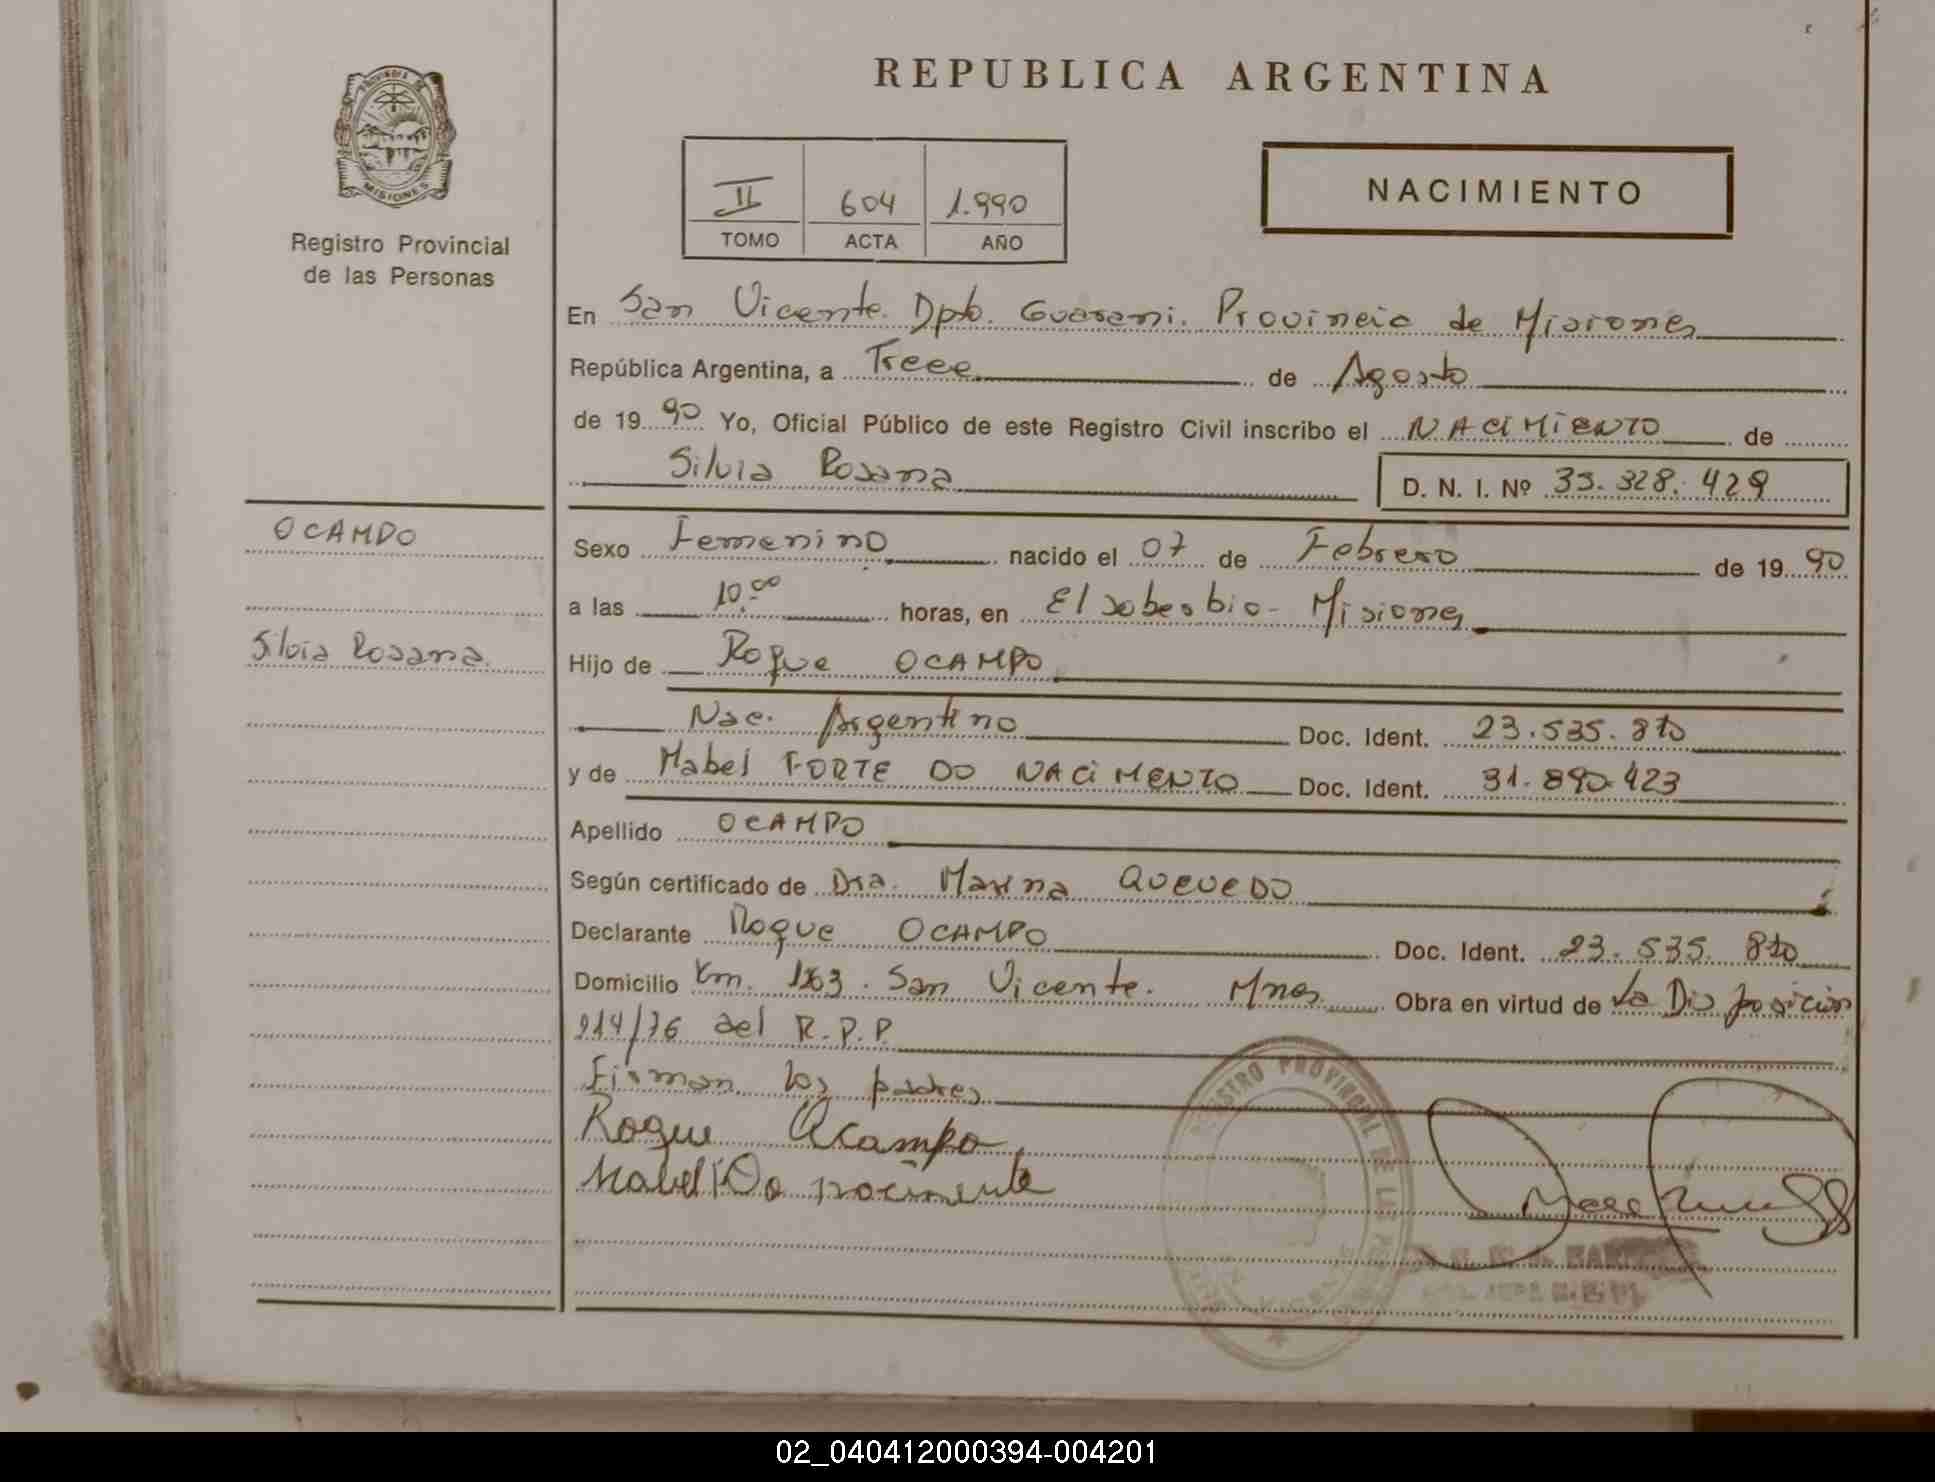 REPUBLICA ARGENTINA
PROVINCIA DE
MISIONES
Registro Provincial
de las Personas
II 604 1.990
TOMO ACTA AÑO
NACIMIENTO
En San Vicente. Dpto. Guarani. Provincia de Misiones
República Argentina, a Trece de Agosto
de 1990 Yo, Oficial Público de este Registro Civil inscribo el NACIMIENTO de
Silvia Rosana D. N. I. Nº 35.328.429
OCAMPO
Silvia Rosana
Sexo Femenino nacido el 07 de Febrero de 1990
a las 10.00 horas, en El soberbio - Misiones
Hijo de Roque OCAMPO
Nac. Argentino Doc. Ident. 23.535.810
y de Mabel FORTE DO NACIMENTO Doc. Ident. 31.890.423
Apellido OCAMPO
Según certificado de Dra. Marina QUEVEDO
Declarante Roque OCAMPO Doc. Ident. 23.535.810
Domicilio Km. 1263. San Vicente. Mnes Obra en virtud de La Disposición
214/76 del R.P.P.
Firman los padres
Roque Ocampo
Mabel F Do nacimento
REGISTRO PROVINCIAL DE LAS
02_040412000394-004201